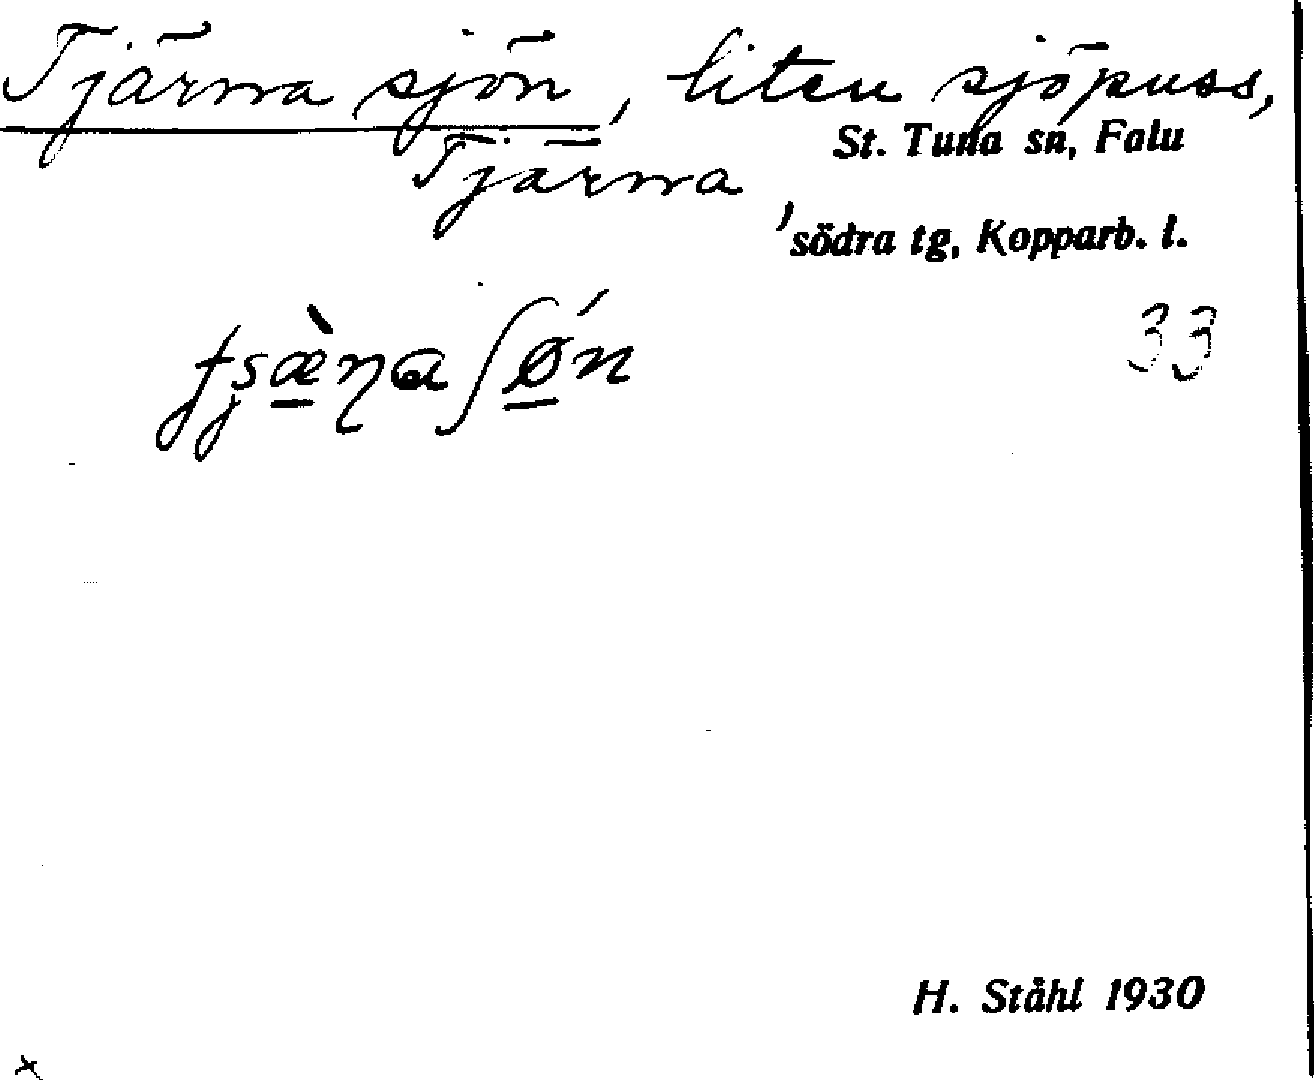 Tjärna sjön, liten sjöpuss,
St. Tuna sn, Falu
Tjärna
södra tg, Kopparb. l.
33
H. Ståhl 1930
x